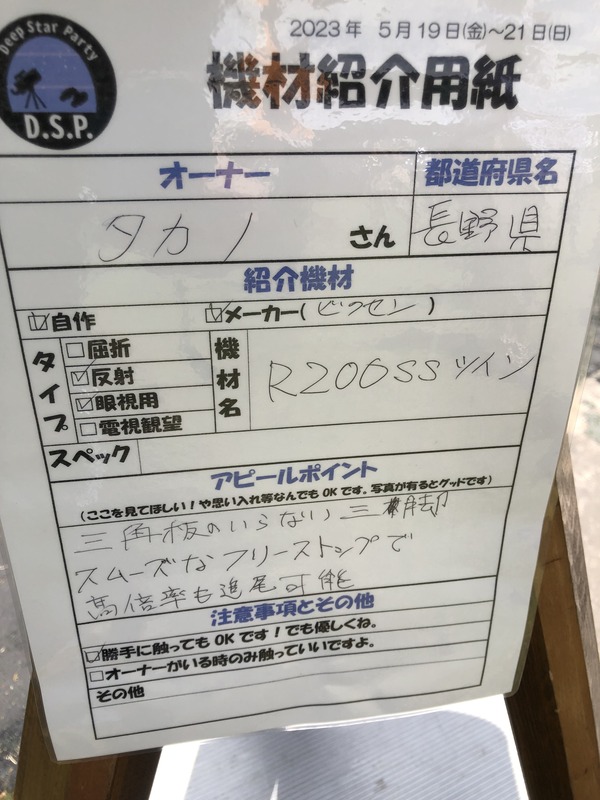 Deep Star Party
D.S.P.
2023年 5月19日(金)～21日(日)
機材紹介用紙
オーナー
都道府県名
タカノ さん
長野県
紹介機材
自作 メーカー(ビクセン)
タイプ
屈折
反射
眼視用
電視観望
機材名
R200SSツイン
スペック
アピールポイント
(ここを見てほしい！や思い入れ等なんでもOKです。写真が有るとグッドです)
三角板のいらない三脚
スムーズなフリーストップで
高倍率も追尾可能
注意事項とその他
勝手に触ってもOKです！でも優しくね。
オーナーがいる時のみ触っていいですよ。
その他